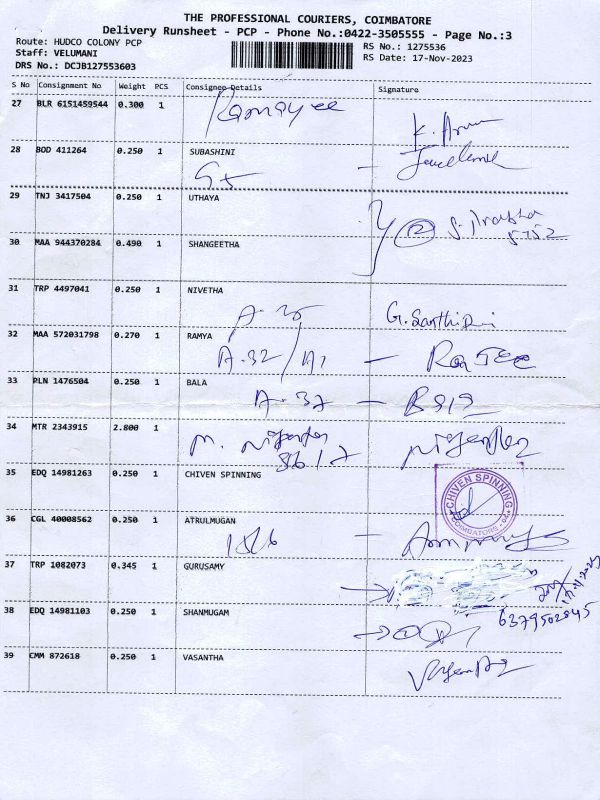 THE PROFESSIONAL COURIERS, COIMBATORE
Delivery Runsheet - PCP - Phone No.:0422-3505555 - Page No.:3
Route: HUDCO COLONY PCP
RS No.: 1275536
Staff: VELUMANI
RS Date: 17-Nov-2023
DRS No.: DCJB127553603
S No Consignment No Weight PCS Consignee Details Signature
27 BLR 6151459544 0.300 1
K. Arun
28 BOD 411264 0.250 1 SUBASHINI
29 TNJ 3417504 0.250 1 UTHAYA
12
5752
30 MAA 944370284 0.490 1 SHANGEETHA
31 TRP 4497041 0.250 1 NIVETHA
32 MAA 572031798 0.270 1 RAMYA
A.32/A1
33 PLN 1476504 0.250 1 BALA
A.37 -
34 MTR 2343915 2.800 1
35 EDQ 14981263 0.250 1 CHIVEN SPINNING
CHIVEN SPINNING
COIMBATORE
36 CGL 40008562 0.250 1 ATRULMUGAN
37 TRP 1082073 0.345 1 GURUSAMY
38 EDQ 14981103 0.250 1 SHANMUGAM
6379502845
39 CMM 872618 0.250 1 VASANTHA